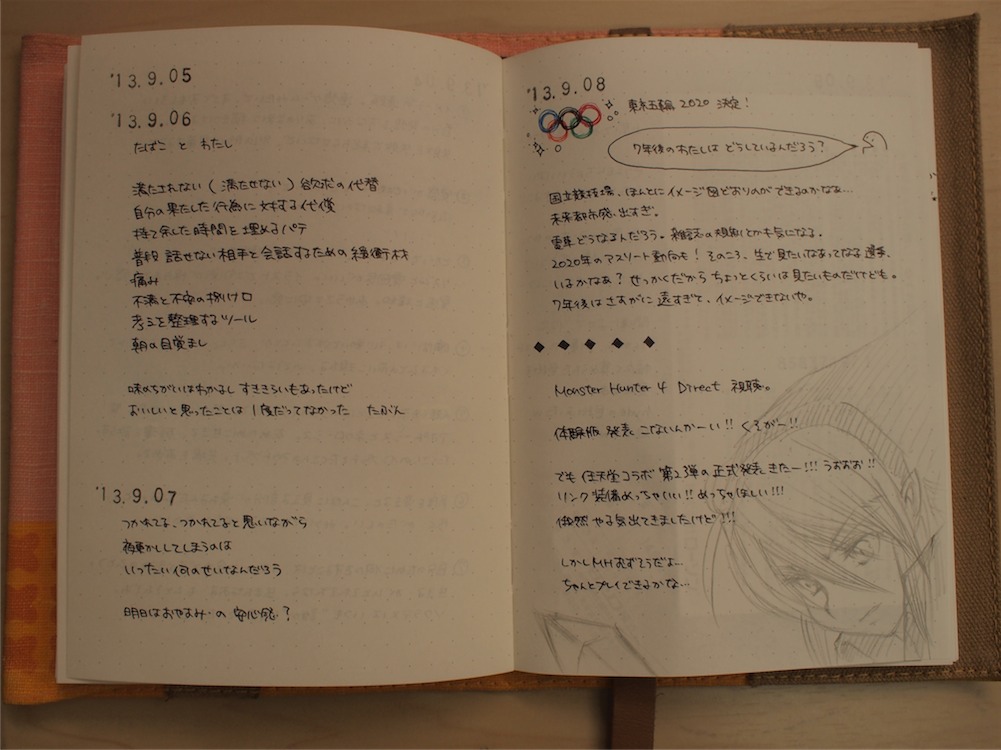 '13.9.05
'13.9.06
たばこ と わたし
満たされない ( 満たせない ) 欲求の代替
自分の果たした行為に対する代償
持て余した時間を埋めるパテ
普段 話せない相手と会話するための緩衝材
痛み
不満と不安の捌け口
考えを整理するツール
朝の目覚まし
味のちがいはわかるし すききらいもあったけど
おいしいと思ったことは 1度だってなかった たぶん
'13.9.07
つかれてる、つかれてると思いながら
夜更かししてしまうのは
いったい何のせいなんだろう
明日はおやすみ の 安心感?
'13.9.08
東京五輪 2020 決定!
7年後のわたしは どうしているんだろう?
国立競技場、ほんとにイメージ図どおりのができるのかなぁ…
未来都市感 出すぎ。
電車どうなるんだろう。雑誌の規制とかも気になる。
2020年のアスリート動向も! そのころ、生で見たいなあってなる選手、
いるかなあ? せっかくだから ちょっとくらいは見たいものだけども。
7年後はさすがに 遠すぎて、イメージできないや。
◆ ◆ ◆ ◆ ◆
Monster Hunter 4 Direct 視聴。
体験版 発表 こないんかーい!! くそがー!!
でも 任天堂コラボ 第2弾の正式発表きたー!!! うおおお!!
リンク装備めっちゃいい!! めっちゃほしい!!!
俄然 やる気出てきましたけど!!!
しかしMHむずそうだよ…
ちゃんとプレイできるかな…